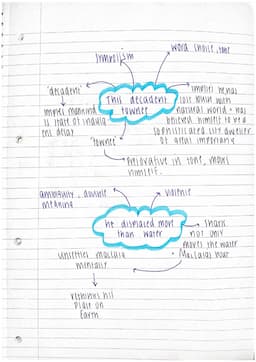 symbolism
word choice, tone
"decadent"
implies mankind
is state of
and decay
This decadent
townee
implies he has
lost touch with
natural world + has
believed himself to be a
sophisticated city dweller
of great importance
"townee"
Pejorative in tone, mocks
himself.
ambiguity, double
meaning
violence
he displaced more
than water
shark
not only
moves the water
MacCaig's boat
unsettles MacCaig
mentally
rethinks his
place on
Earth